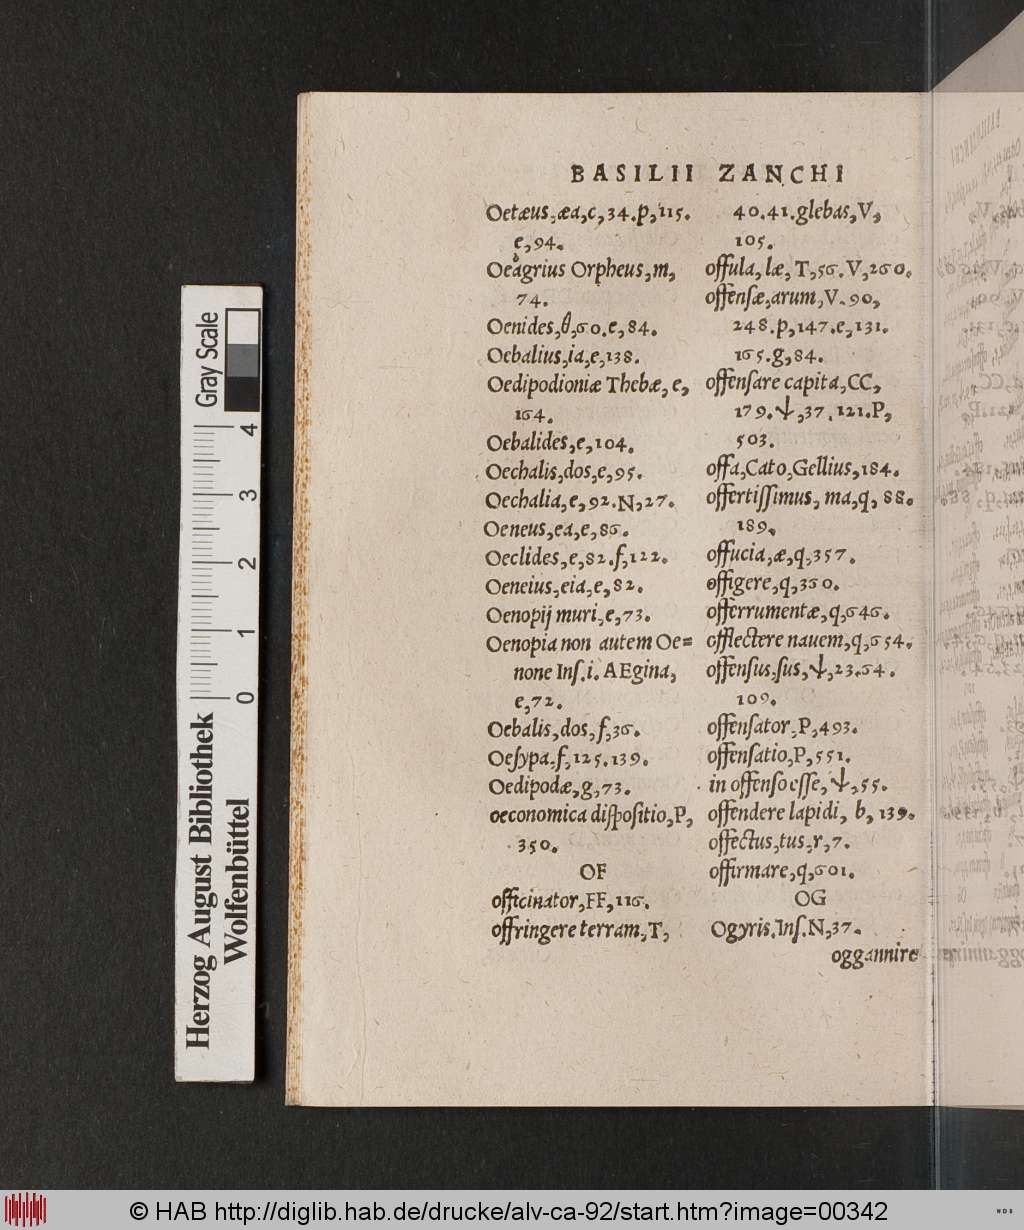 BASILII ZANCHI
Oetæus,æa,c,34.p,115.
e,94.
Oeagrius Orpheus,m,
74.
Oenides,θ,60.e,84.
Oebalius,ia,e,138.
Oedipodioniæ Thebæ, e,
164.
Oebalides,e,104.
Oechalis,dos,e,95.
Oechalia,e,92.N,27.
Oeneus,ea,e,86.
Oeclides,e,82.f,122.
Oeneius,eia,e,82.
Oenopij muri,e,73.
Oenopia non autem Oe=
none Inſ.i. AEgina,
e,72.
Oebalis,dos,f,36.
Oeſypa,f,125.139.
Oedipodæ,g,73.
oeconomica diſpoſitio,P,
350.
OF
officinator,FF,116.
offringere terram,T,
40.41.glebas,V,
105.
offula,læ,T,56.V,260.
offenſæ,arum,V.90,
248.p,147.e,131.
165.g,84.
offenſare capita,CC,
179.ψ,37.121.P,
503.
offa,Cato,Gellius,184.
offertiſſimus, ma,q, 88.
189.
offucia,æ,q,357.
offigere,q,360.
offerrumentæ,q,646.
offlectere nauem,q,654.
offenſus,ſus,ψ,23.64.
109.
offenſator,P,493.
offenſatio,P,551.
in offenſo eſſe,ψ,55.
offendere lapidi, b, 139.
offectus,tus,r,7.
offirmare,q,601.
OG
Ogyris.Inſ.N,37.
oggannire
Gray Scale
0 1 2 3 4
Herzog August Bibliothek
Wolfenbüttel
© HAB http://diglib.hab.de/drucke/alv-ca-92/start.htm?image=00342